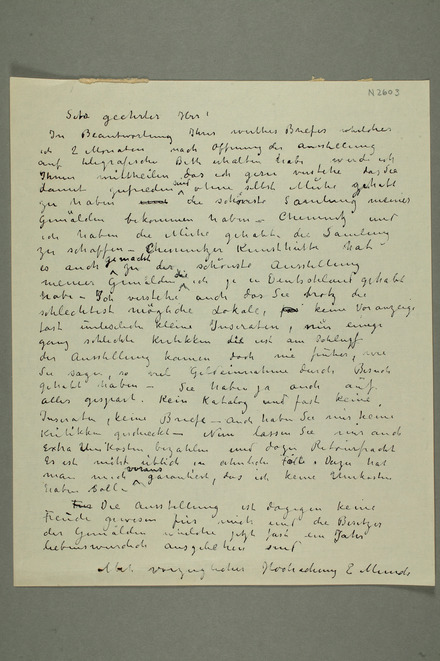 N 2603
Sehr geehrter Herr!
In Beantwortung Ihres werthes Briefes welches
ich 2 Monaten nach Öffnung der Ausstellung
auf telegrafische Bitte erhalten habe werde ich
Ihnen mittheilen das ich gern verstehe das Sie
damit zufrieden sind ohne selbst Mühe gehabt
zu haben die schönste Samlung meiner
Gemälden bekommen haben – Chemnitz und
ich haben die Mühe gehabt die Samlung
zu schaffen – Chemnitzer Kunsthütte hat
es auch gemacht zu der schönste Ausstellung
meiner Gemälden die ich je in Deutschland gehabt
habe – Ich verstehe auch das Sie trotz die
schlechtest mögliche Lokale, keine Voranzeige
fast unleserlich kleine Inseraten, nur einige
ganz schlechte Kritikken die erst am Schluss
der Ausstellung kamen doch nie früher, wie
Sie sagen, so viel Geldeinnahme durch Besuch
gehabt haben – Sie haben ja auch auf
alles gespart. Kein Katalog und fast keine
Inseraten, keine Briefe – Auch haben Sie mir keine
Kritikken geschickt – Nun lassen Sie mir auch
Extra Unkosten bezahlen und dazu Retourfracht
Es ist nicht üblich in ähnliche Fälle. Dazu hat
man mich voraus garantiert, das ich keine Unkosten
haben soll –
Die Ausstellung ist dagegen keine
Freude gewesen für mich und die Besitzer
der Gemälden welche jetzt fast ein Jahr
liebenswürdich ausgeliehen sind
Mit vorzüglicher Hochachtung E Munch